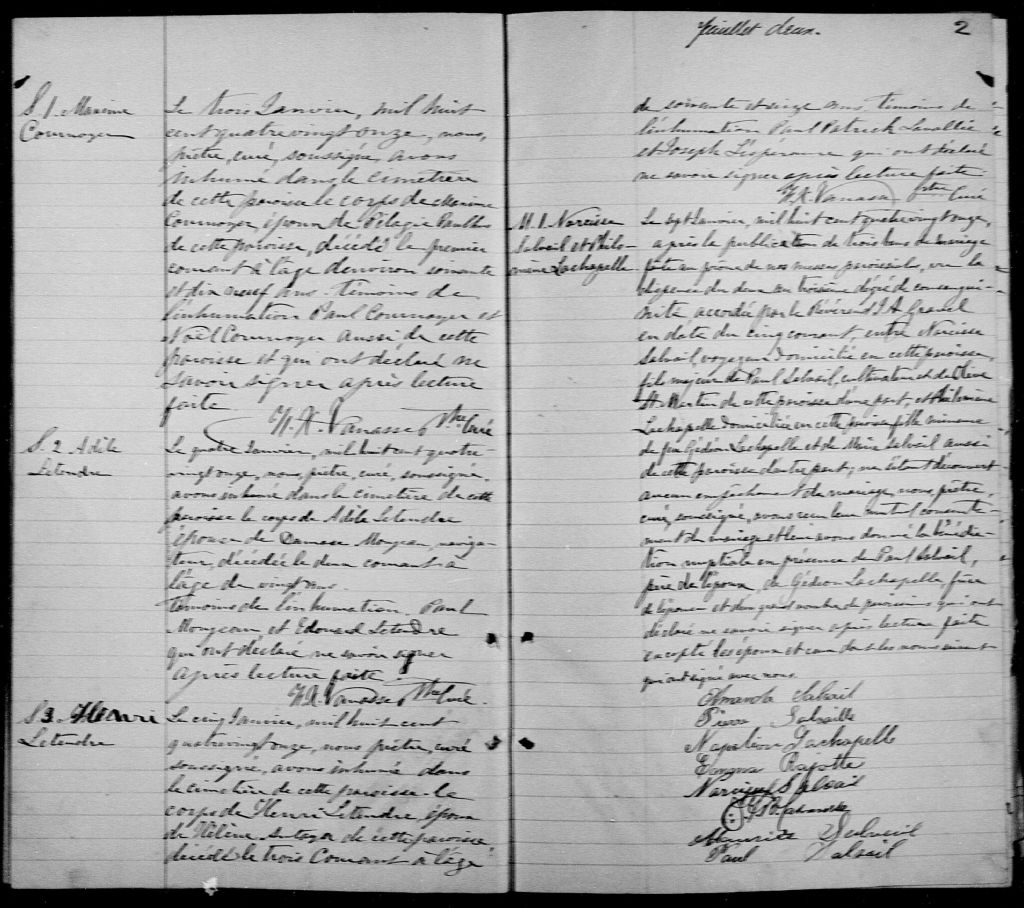 S 1. Maxime
Cournoyer
Le trois Janvier, mil huit
cent quatre vingt onze, nous,
prêtre, curé, soussigné, avons
inhumé dans le cimetière
de cette paroisse le corps de Maxime
Cournoyer, époux de Pélagie Paulhus
de cette paroisse, décédé le premier
courant à l'âge d'environ soixante
et dix neuf ans. témoins de
l'inhumation Paul Cournoyer et
Noël Cournoyer aussi de cette
paroisse et qui ont déclaré ne
savoir signer après lecture
faite.
H. A. Vanasse Ptre Curé
S. 2 Adèle
Letendre
Le quatre Janvier, mil huit cent quatre-
vingt onze, nous, prêtre, curé, soussigné,
avons inhumé dans le cimetière de cette
paroisse le corps de Adèle Letendre
épouse de Damase Mongeau, naviga-
teur, décédée le deux courant à
l'âge de vingt ans.
témoins de l'inhumation. Paul
Mongeau et Edouard Letendre
qui ont déclaré ne savoir signer
après lecture faite.
H. A. Vanasse Ptre Curé.
S 3. Henri
Letendre
Le cinq Janvier, mil huit cent
quatre vingt onze, nous prêtre, curé
soussigné, avons inhumé dans
le cimetière de cette paroisse le
corps de Henri Letendre, époux
de Hélène de cette paroisse
décédé le trois Courant à l'âge
feuillet deux. 2
de soixante et seize ans témoins de
l'inhumation Paul Patrick Lavallée
et Joseph L'espérance qui ont déclaré
ne savoir signer après lecture faite
H. A. Vanasse Ptre Curé
M. 1. Narcisse
Salvail et Philo-
mène Lachapelle
Le sept Janvier, mil huit cent quatre vingt onze,
après la publication de trois bans de mariage
faite au prône de nos messes paroissiales, vu la
dispense du deux au troisième degré de consangui-
nité accordée par le Révérend J. A. Gravel
en date du cinq courant, entre Narcisse
Salvail, voyageur, domicilié en cette paroisse,
fils majeur de Paul Salvail, cultivateur et de Olive
St. Martin de cette paroisse d'une part, et Philomène
Lachapelle domiciliée en cette paroisse fille mineure
de feu Gédéon Lachapelle et de Marie Salvail aussi
de cette paroisse d'autre part; ne s'étant découvert
aucun empêchement de mariage, nous, prêtre,
curé, soussigné, avons reçu leur mutuel consente-
ment de mariage et leur avons donné la bénédic-
tion nuptiale en présence de Paul Salvail,
père de l'époux, de Gédéon Lachapelle, frère
de l'épouse et d'un grand nombre de paroissiens qui ont
déclaré ne savoir signer après lecture faite
excepté les époux et ceux dont les noms suivent
qui ont signé avec nous.
Amanda Salvail
Pierre Salvaille
Napoléon Lachapelle
Rajotte
Narcisse Salvail
Maurice Salvail
Paul Salvail